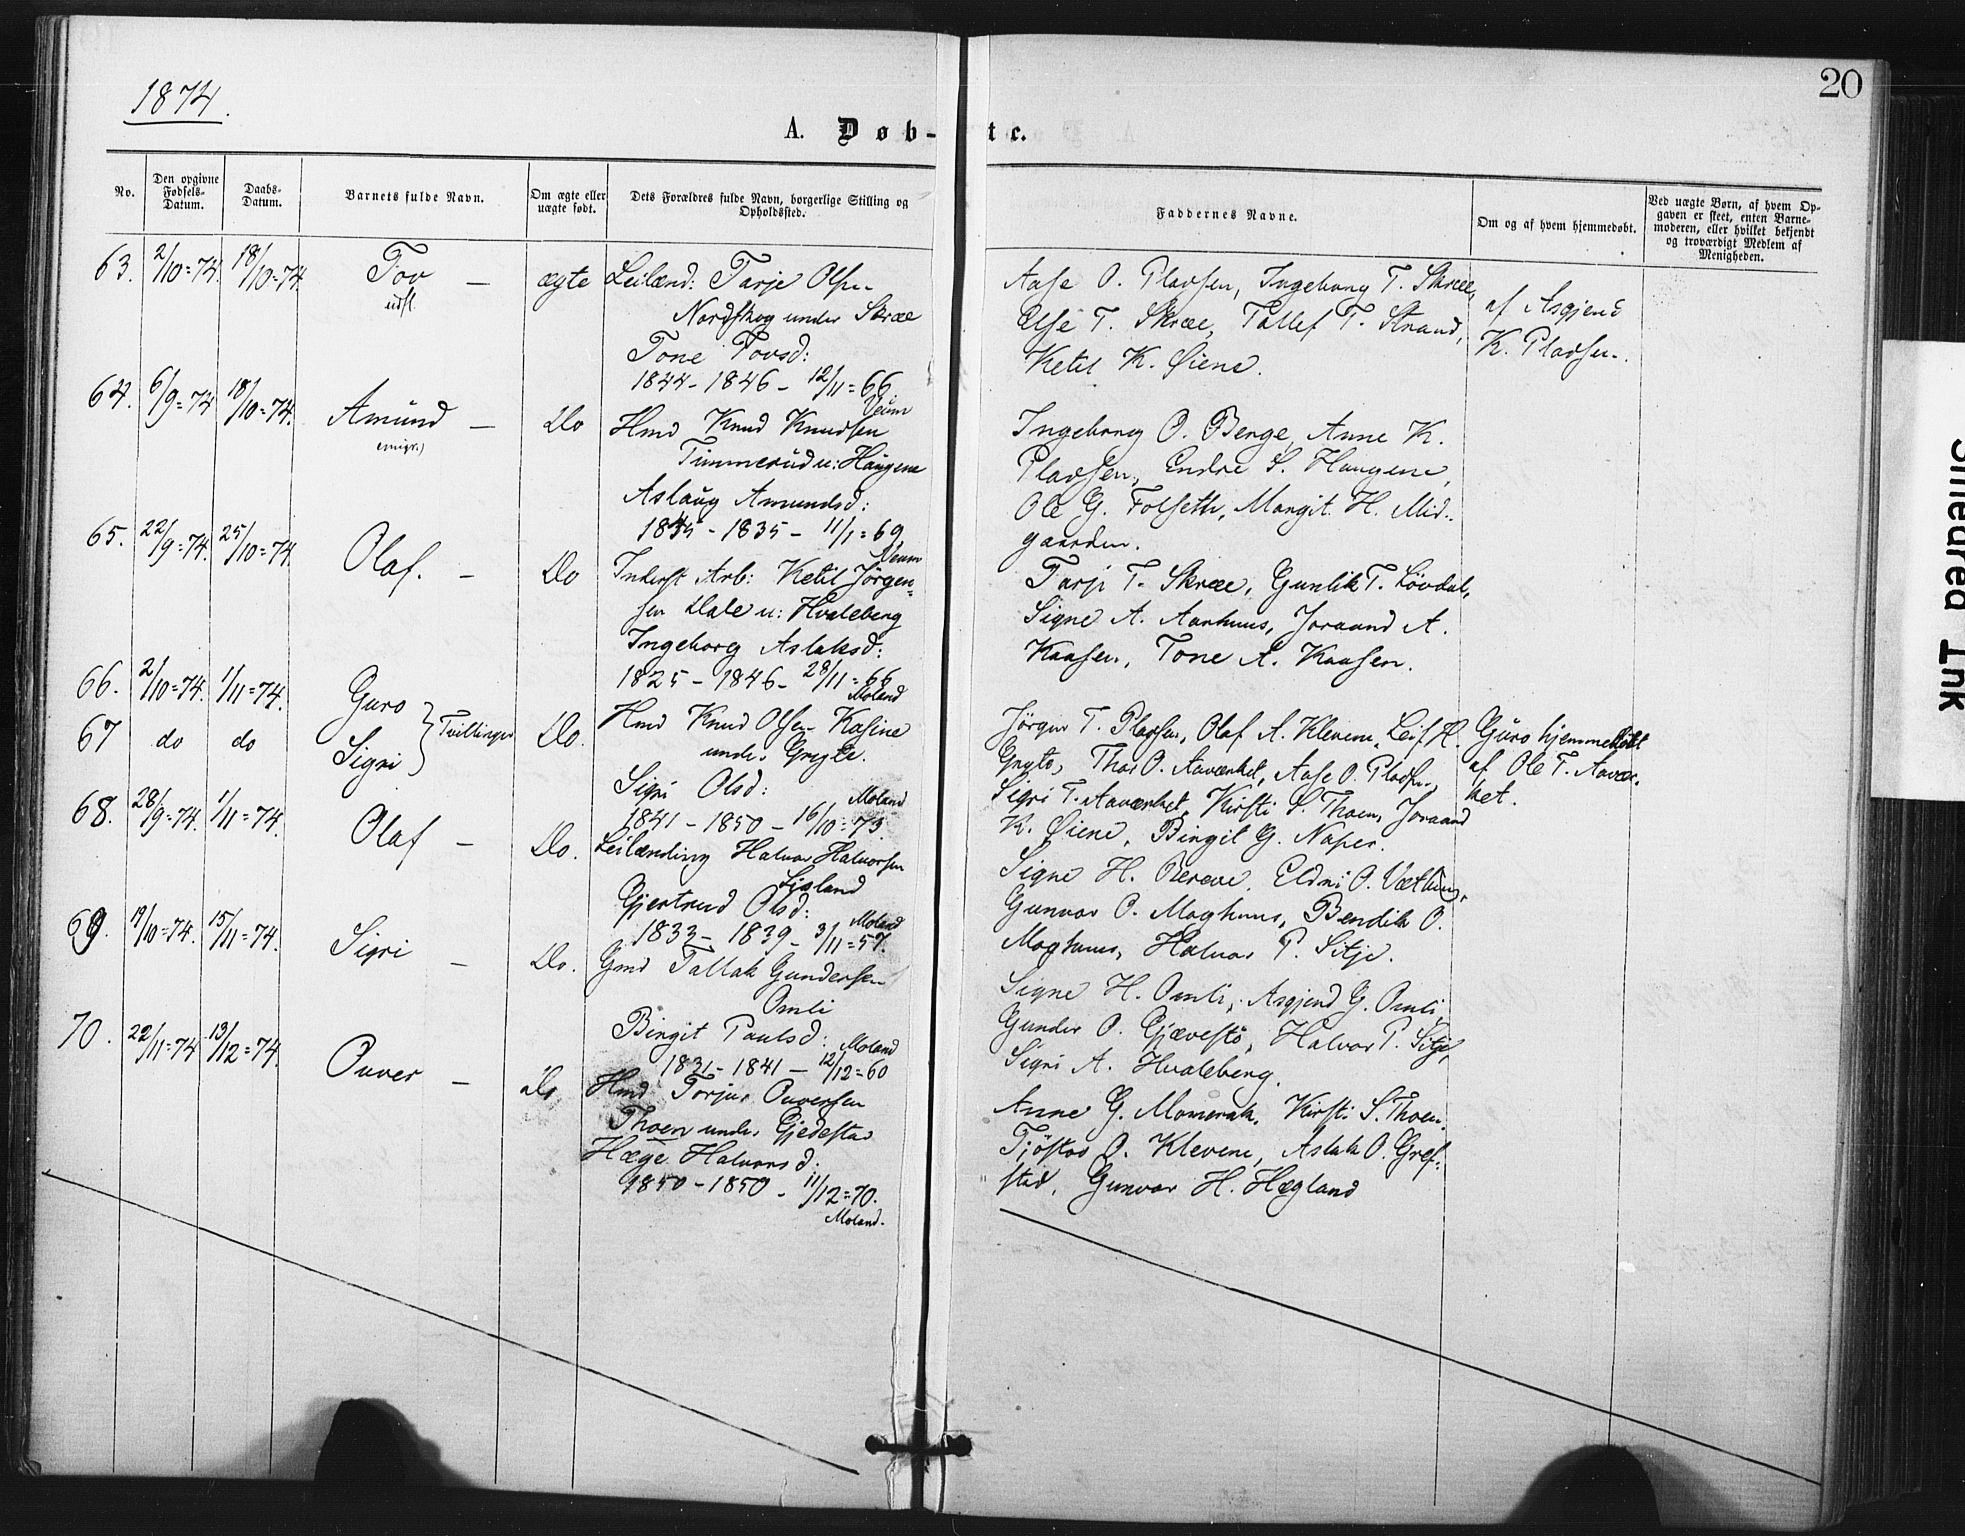 1874.
20
A. Døb-
te.
No.
Den opgivne Fødsels-Datum.
Daabs-Datum.
Barnets fulde Navn.
Om ægte eller uægte født.
Dets Forældres fulde Navn, borgerlige Stilling og Opholdssted.
Faddernes Navne.
Om og af hvem hjemmedøbt.
Ved uægte Børn, af hvem Op-
gaven er skeet, enten Barne-
moderen, eller hvilket bekjendt
og troværdigt Medlem af
Menigheden.
63. 2/10=74. 18/10=74 Tov — ægte
udfl.
Leilænd: Tarje Olsen
Nordskog under Skræe
Tone Tovsd:
1844 - 1846 - 12/11=66
Veum
Aase O. Pladsen, Ingeborg T. Skræe,
Else T. Skræe, Tallef T. Strand,
Ketil K. Øiene.
af Asgjend
K. Pladsen.
64. 6/9=74 18/10=74. Amund — Do
emigr.)
Hmd Knud Knudsen
Timmerud u: Haugene
Aslaug Amundsd:
1845 - 1835 - 11/1=69,
Veum
Ingeborg O. Berge, Anne K.
Pladsen, Endre S. Haugene,
Ole G. Folseth, Margit H. Mid-
gaarden.
65. 22/9=74. 25/10=74. Olaf. — Do
Inderst Arb: Ketil Jörgen-
sen Dale u: Hvaleberg
Ingeborg Aslaksd:
1825 - 1846 - 28/11=66
Moland
Tarji T. Skræe, Gunlik T. Lövdal,
Signe A. Aarhuus, Joraand A.
Kaasen, Tone A. Kaasen.
66. 2/10=74. 1/11=74. Guro
67 do do Sigri } Tvillinger Do.
Hmd Knud Olsen Kasine
under Gryte.
Sigri Olsd:
1841 - 1850 - 16/10=73.
Moland
Jørgen T. Pladsen, Olaf A. Klevene, Leif H.
Gryte, Thor O. Aaværket, Aase O. Pladsen,
Sigri T. Aaværket, Kirsti S. Thoen, Joraand
K. Øiene, Birgit G. Naper.
Guro hjemmedöbt
af Ole T. Aavær-
ket.
68. 28/9=74. 1/11=74. Olaf — Do.
Leilænding Halvor Halvorsen
Lisland
Gjertrud Olsd:
1833 - 1839 - 3/11=57.
Moland
Signe H. Rereve, Eldri O. Vethuus,
Gunvor O. Moghuus, Bendik O.
Moghuus, Halvor P. Sitje.
69. 19/10=74. 15/11=74. Sigri — Do.
Gmd Tallak Gundersen
Omli
Birgit Paulsd:
Moland
1831 - 1841 - 12/12=60
Signe H. Omli, Asgjend G. Omli,
Gunder O. Gjævestö, Halvor P. Sitje,
Sigri A. Hvaleberg.
70. 22/11=74 13/12=74. Ouver — Do
Hmd Torjus Ouversen
Thoen under Gjedestad
Hæge Halvorsd:
1850 - 1850 - 11/12=70.
Moland.
Anne G. Momrak, Kirsti S. Thoen.
Tjöstov O. Klevene, Aslak O. Gref-
stad, Gunvor H. Hægland
Smedrea Ink